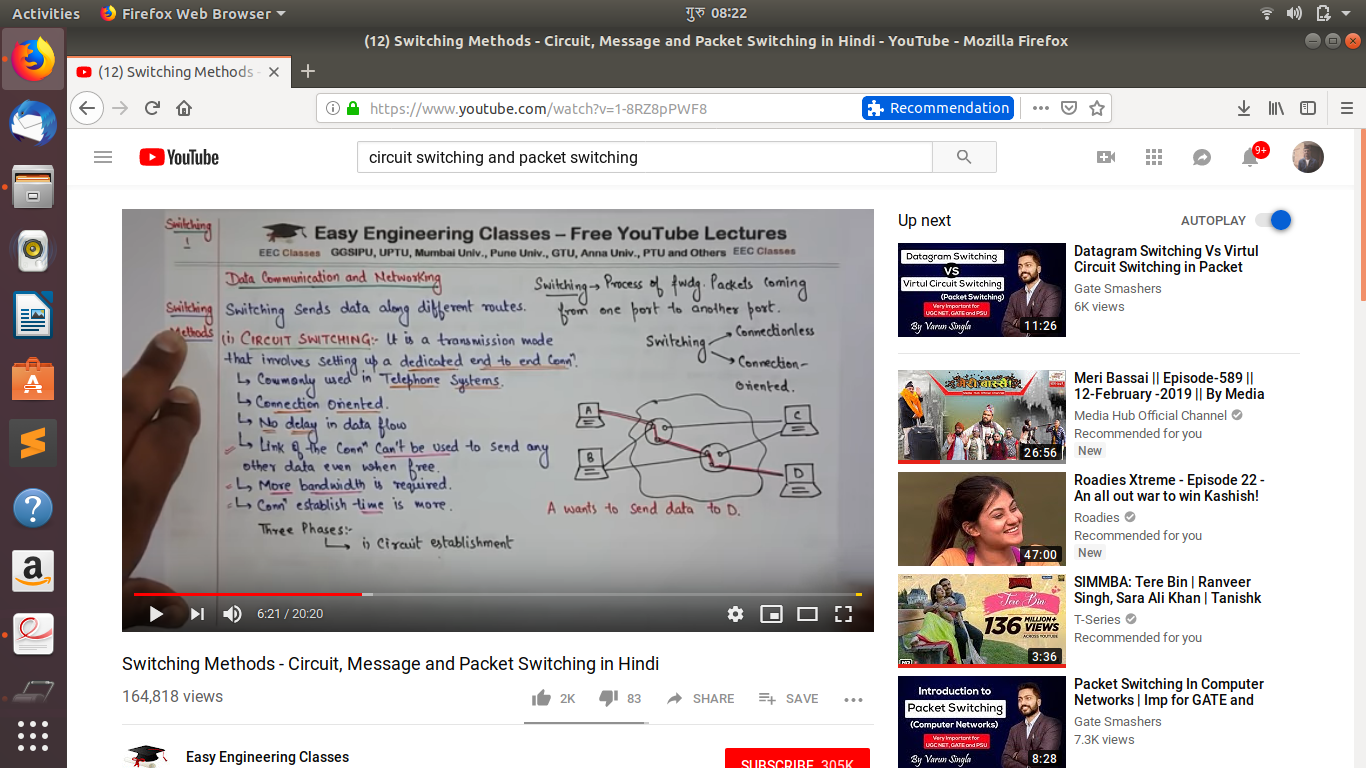 Activities
Firefox Web Browser
गुरु 08:22
(12) Switching Methods - Circuit, Message and Packet Switching in Hindi - YouTube - Mozilla Firefox
(12) Switching Methods -
https://www.youtube.com/watch?v=1-8RZ8pPWF8
Recommendation
YouTube
circuit switching and packet switching
9+
Switching
1
Easy Engineering Classes – Free YouTube Lectures
EEC Classes GGSIPU, UPTU, Mumbai Univ., Pune Univ., GTU, Anna Univ., PTU and Others EEC Classes
Data Communication and Networking
Switching → Process of fwdg. Packets coming
from one port to another port.
Switching
Methods
Switching sends data along different routes.
Switching
Connectionless
Connection-
Oriented.
(i) CIRCUIT SWITCHING:- It is a transmission mode
that involves setting up a dedicated end to end Connⁿ.
↳ Commonly used in Telephone Systems.
↳ Connection Oriented.
↳ No delay in data flow
↳ Link of the Connⁿ Can't be used to send any
other data even when free.
↳ More bandwidth is required.
↳ Connⁿ establish time is more.
Three Phases:-
↳ i) Circuit establishment
A
B
C
D
A wants to send data to D.
6:21 / 20:20
Switching Methods - Circuit, Message and Packet Switching in Hindi
164,818 views
2K
83
SHARE
SAVE
Easy Engineering Classes
SUBSCRIBE 305K
Up next
AUTOPLAY
Datagram Switching
VS
Virtul Circuit Switching
(Packet Switching)
Very Important for
UGC NET, GATE and PSU
By Varun Singla
11:26
Datagram Switching Vs Virtul
Circuit Switching in Packet
Gate Smashers
6K views
मेरी बास्सै
26:56
Meri Bassai || Episode-589 ||
12-February -2019 || By Media
Media Hub Official Channel
Recommended for you
New
47:00
Roadies Xtreme - Episode 22 -
An all out war to win Kashish!
Roadies
Recommended for you
New
Tere Bin
136 MILLION+
VIEWS
ACROSS YOUTUBE
3:36
SIMMBA: Tere Bin | Ranveer
Singh, Sara Ali Khan | Tanishk
T-Series
Recommended for you
Introduction to
Packet Switching
(Computer Networks)
Very Important for
UGC NET, GATE and PSU
By Varun Singla
8:28
Packet Switching In Computer
Networks | Imp for GATE and
Gate Smashers
7.3K views